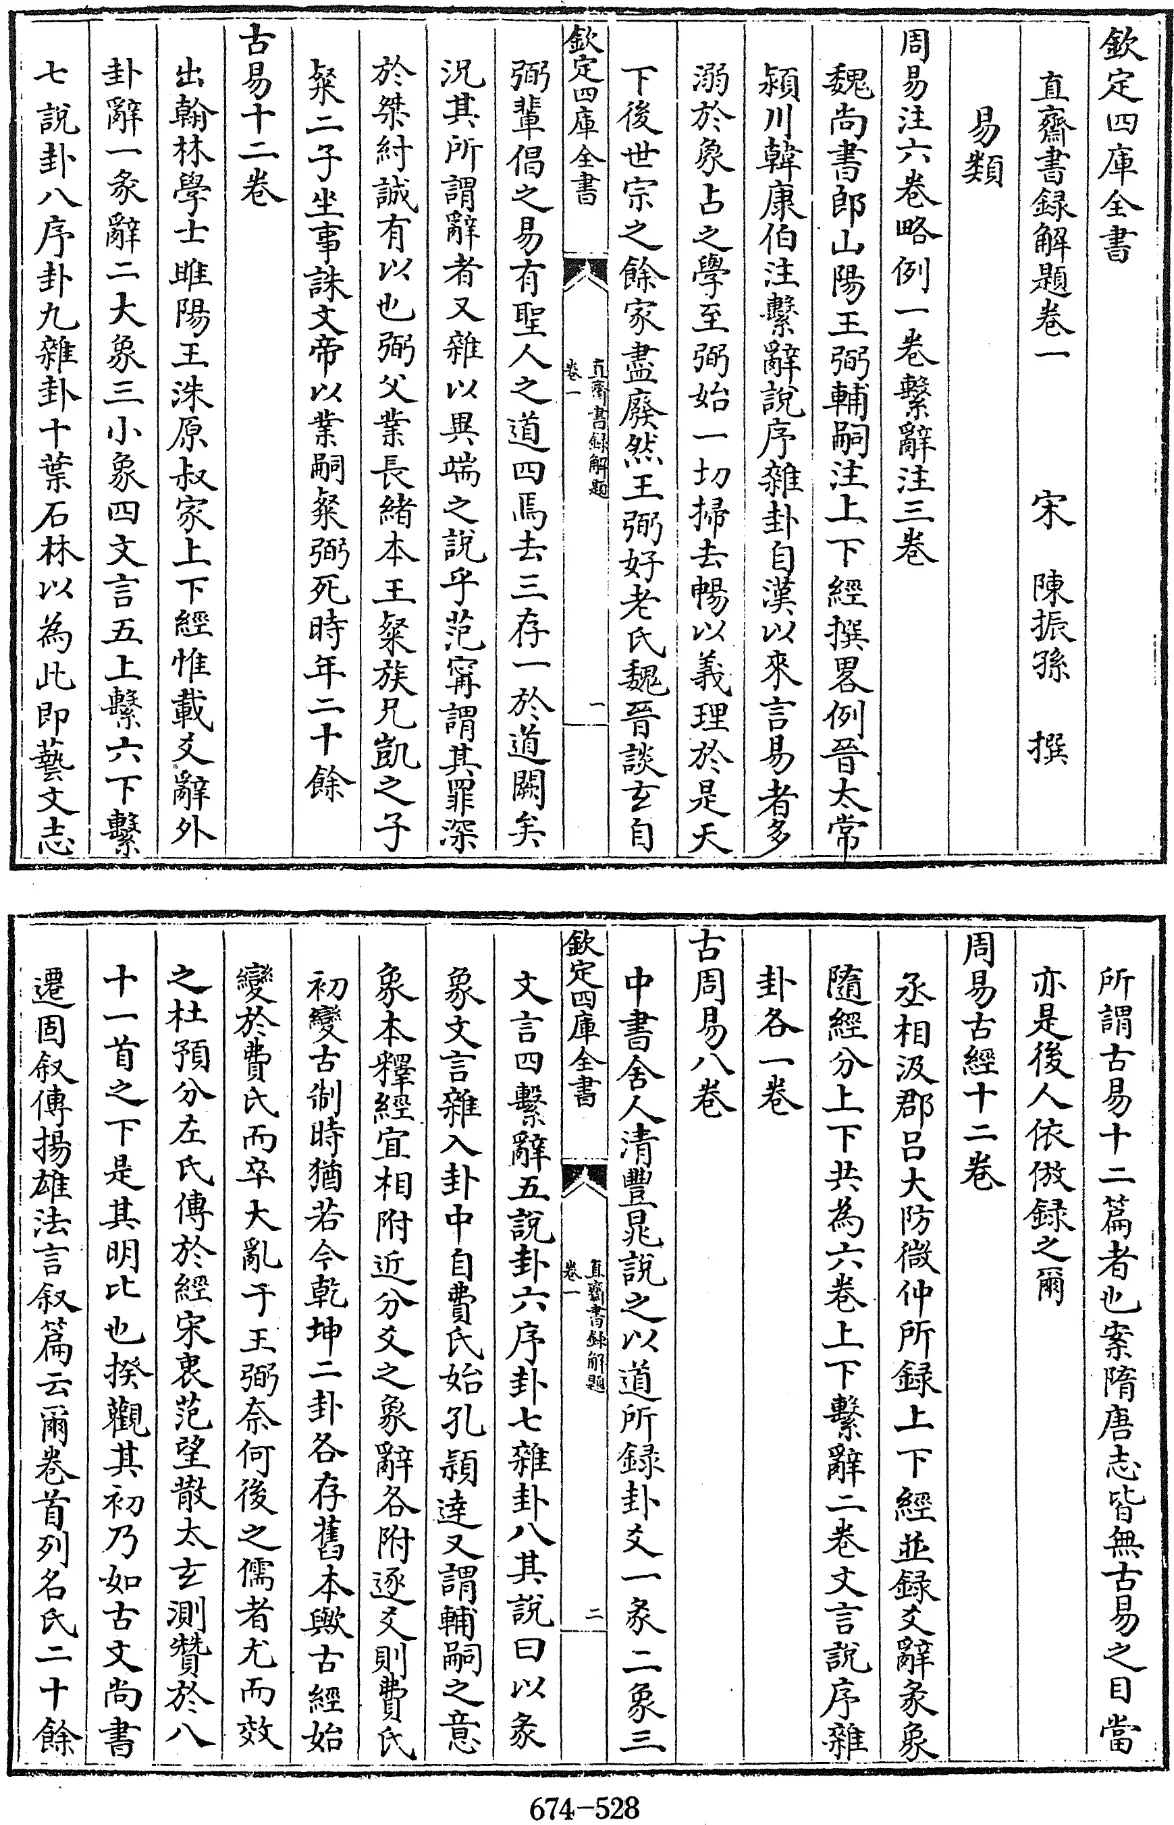 欽定四庫全書
直齋書録解題卷一 宋 陳振孫 撰
易類
周易注六卷略例一卷繫辭注三卷
魏尚書郎山陽王弼輔嗣注上下經撰畧例晉太常
潁川韓康伯注繫辭說序雜卦自漢以來言易者多
溺於象占之學至弼始一切掃去暢以義理於是天
下後世宗之餘家盡廢然王弼好老氏魏晉談玄自
欽定四庫全書 直齋書録解題 卷一 一
弼輩倡之易有聖人之道四焉去三存一於道闕矣
況其所謂辭者又雜以異端之說乎范甯謂其罪深
於桀紂誠有以也弼父業長緒本王粲族兄凱之子
粲二子坐事誅文帝以業嗣粲弼死時年二十餘
古易十二卷
出翰林學士睢陽王洙原叔家上下經惟載爻辭外
卦辭一彖辭二大象三小象四文言五上繫六下繫
七說卦八序卦九雜卦十葉石林以為此即藝文志
所謂古易十二篇者也案隋唐志皆無古易之目當
亦是後人依倣録之爾
周易古經十二卷
丞相汲郡呂大防微仲所録上下經並録爻辭彖象
隨經分上下共為六卷上下繫辭二卷文言說序雜
卦各一卷
古周易八卷
中書舍人清豐晁說之以道所録卦爻一彖二象三
欽定四庫全書 直齋書録解題 卷一 二
文言四繫辭五說卦六序卦七雜卦八其說曰以彖
象文言雜入卦中自費氏始孔穎達又謂輔嗣之意
象本釋經宜相附近分爻之象辭各附逐爻則費氏
初變古制時猶若今乾坤二卦各存舊本歟古經始
變於費氏而卒大亂于王弼奈何後之儒者尤而效
之杜預分左氏傳於經宋衷范望散太玄測贊於八
十一首之下是其明比也揆觀其初乃如古文尚書
遷固叙傳揚雄法言叙篇云爾卷首列名氏二十餘
674-528